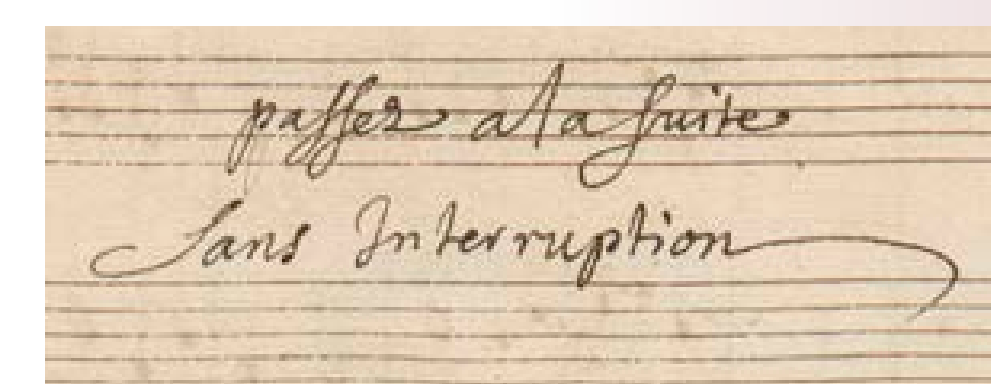 passez a la suite
sans Interruption